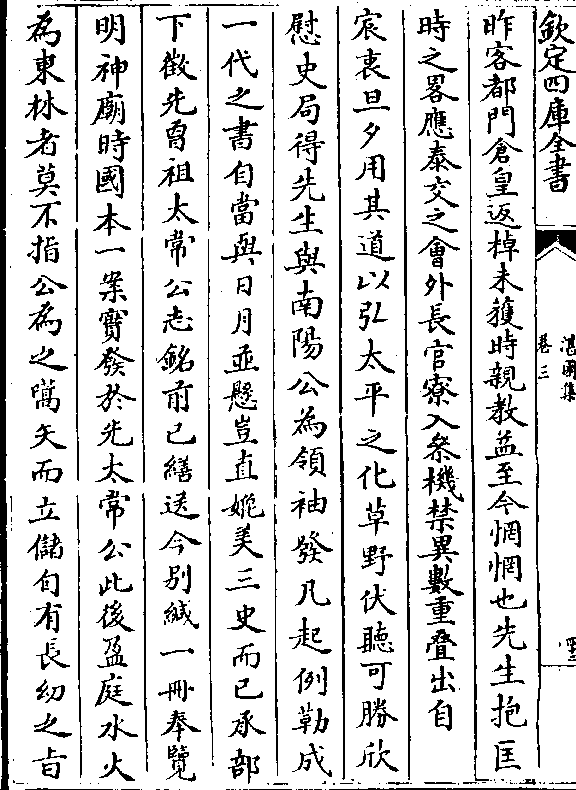 欽定四庫全書
湛園集
卷三
昨客都門倉皇返棹未獲時親教益至今惘惘也先生抱匡
時之畧應泰交之會外長官寮入叅機禁異數重疊出自
宸衷旦夕用其道以弘太平之化草野伏聽可勝欣
慰史局得先生與南陽公為領袖發凡起例勒成
一代之書自當與日月並懸豈直媲美三史而已承部
下徵先曾祖太常公志銘前已繕送今别緘一冊奉覽
明神廟時國本一案實發於先太常公此後盈庭水火
為東林者莫不指公為之嚆矢而立儲自有長幼之㫖